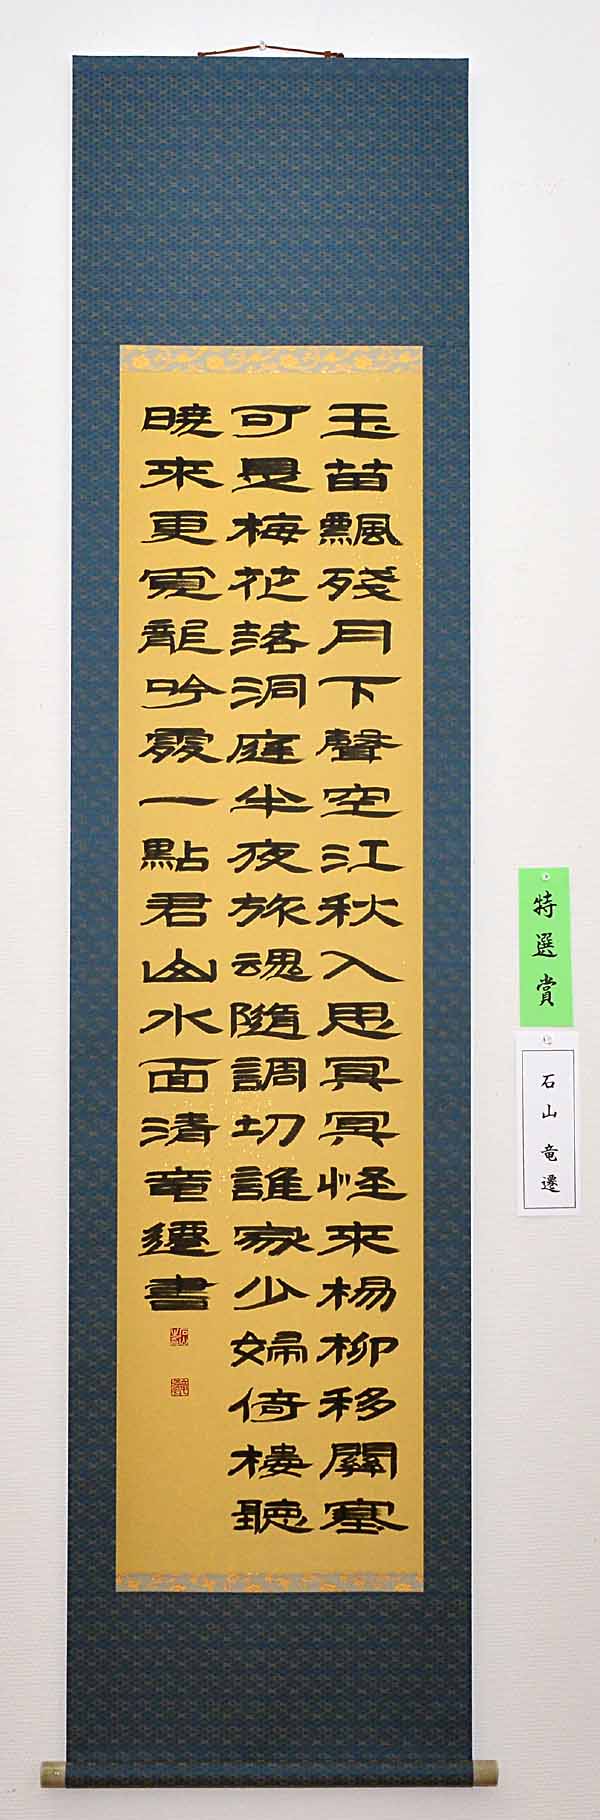 玉笛飄殘月下聲空江秋入思冥冥怪來楊柳移關塞
可是梅花落洞庭半夜旅魂隨調切誰家少婦倚樓聽
曉來更覓龍吟處一點君山水面清竜遷書
特選賞
石山竜遷